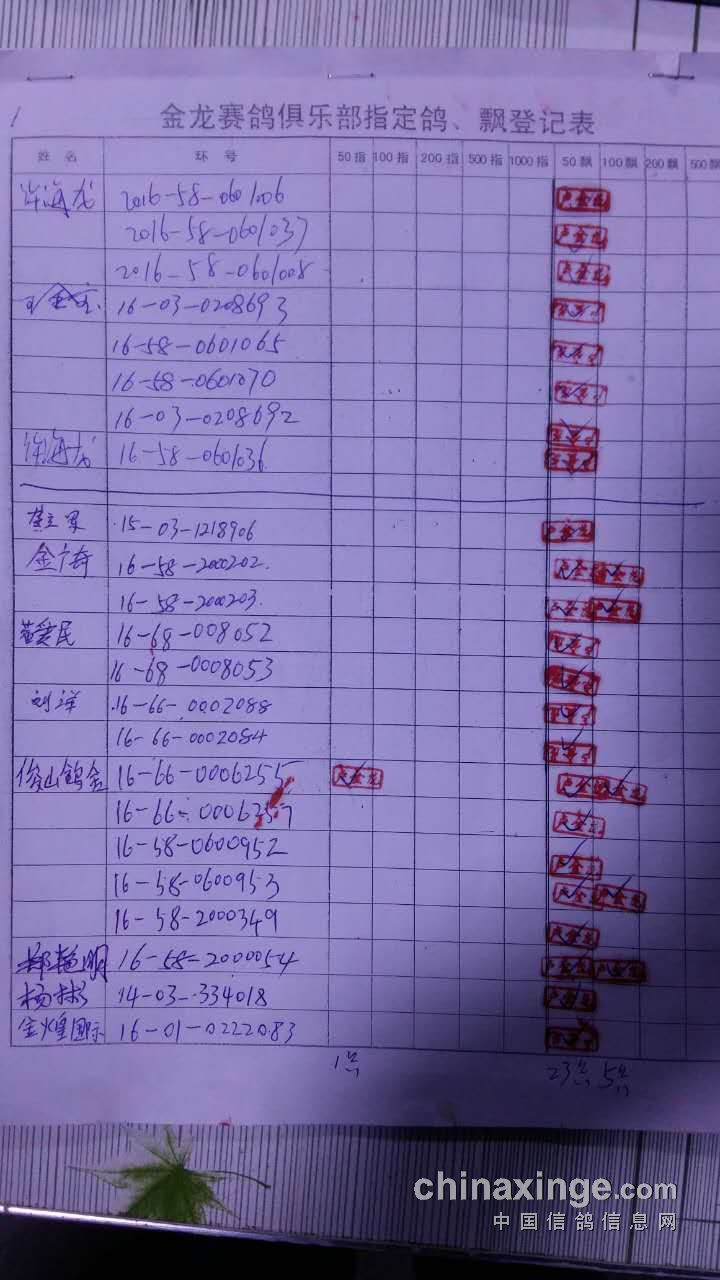 1
金龙赛鸽俱乐部指定鸽、飘登记表
姓 名 环 号 50指 100指 200指 500指 1000指 50飘 100飘 200飘 500飘
许海龙 2016-58-0601006
2016-58-0601037
2016-58-0601008
16-03-0208693
16-58-0601065
16-58-0601070
16-03-0208692
许海龙 16-58-0601036
15-03-1218906
金广奇 16-58-2000202.
16-58-2000203.
董爱民 16-68-008052
16-68-0008053
刘洋 16-66-0002088
16-66-0002084
俊山鸽舍 16-66-0006255
16-66-0006357
16-58-0600952
16-58-0600953
16-58-2000349
郑艳明 16-58-2000054
杨彬 14-03-334018
金煌国际 16-01-0222083
1羽 23羽 5羽
chinaxinge.com
中国信鸽信息网